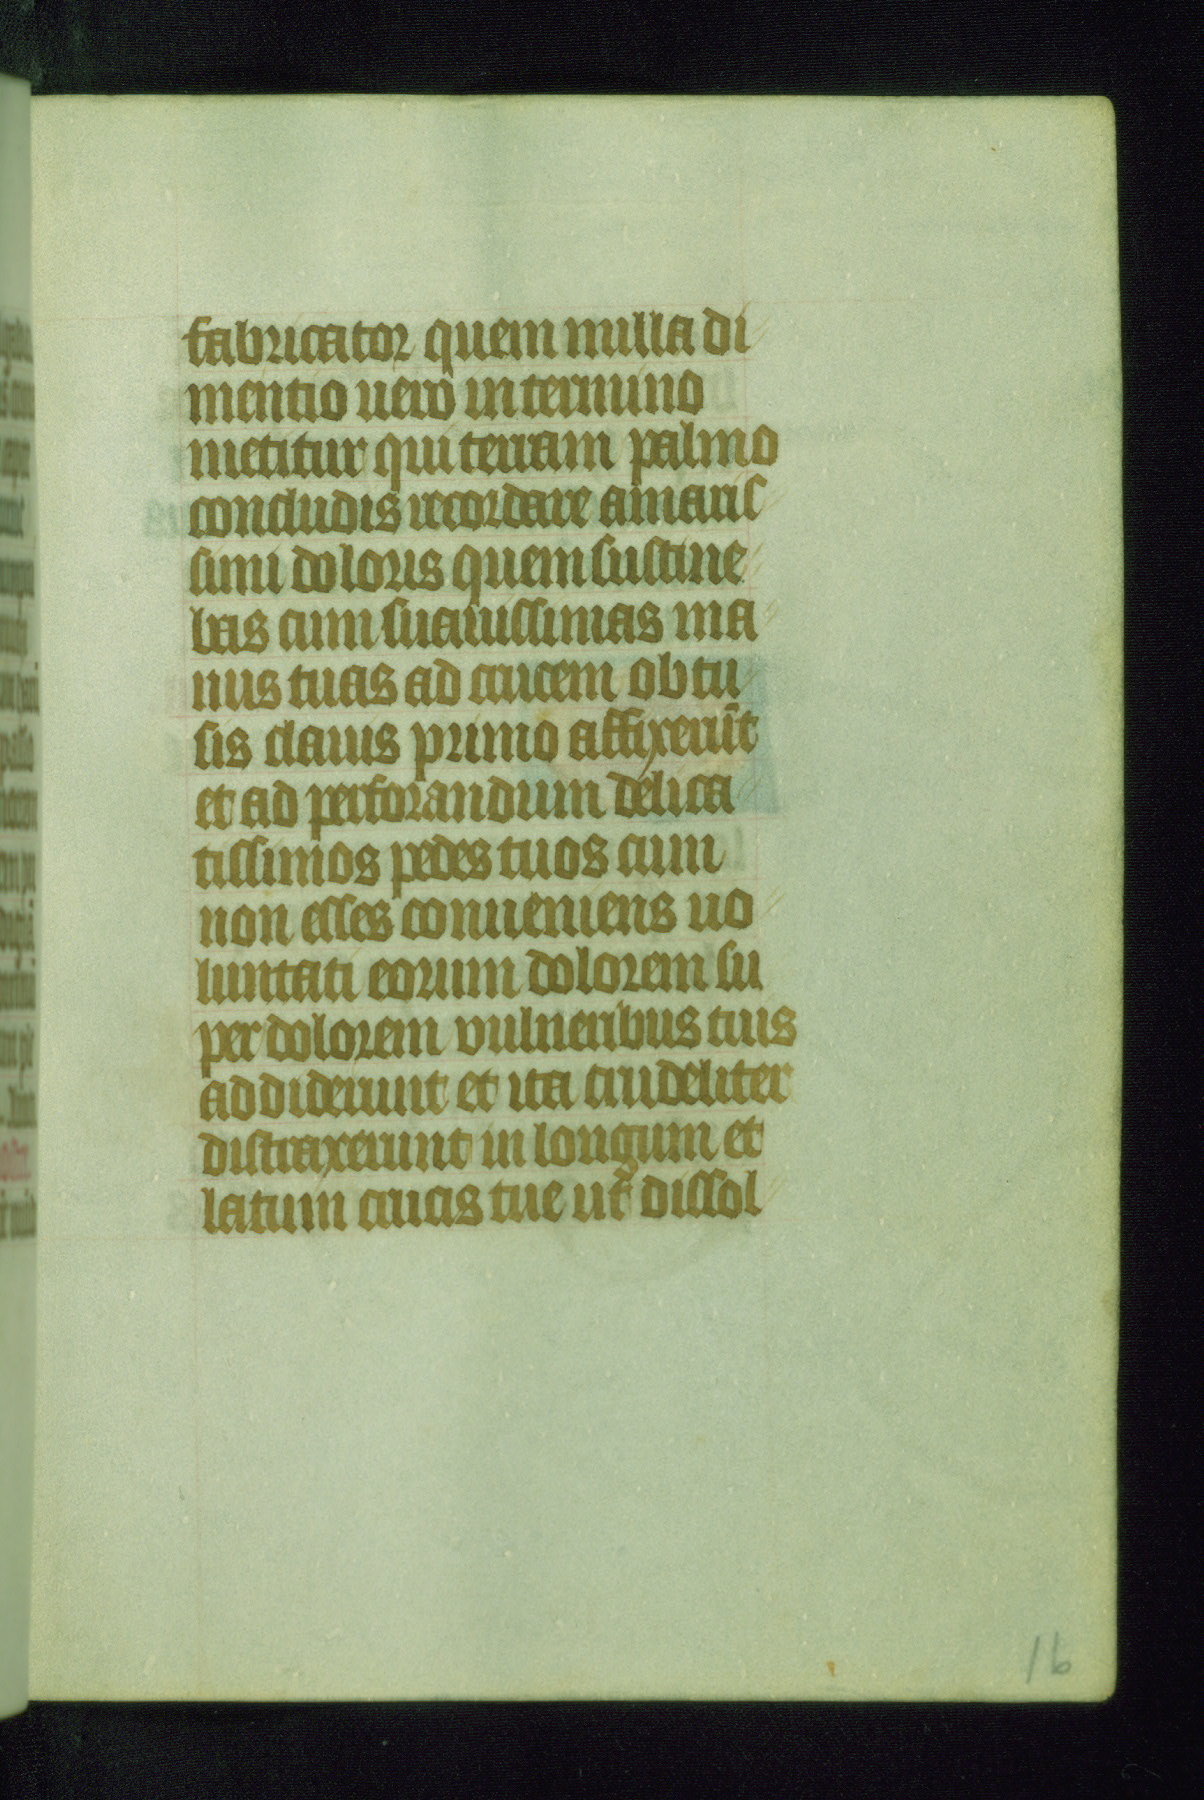 fabricator quem nulla di
mentio uero in termino
metitur qui terram palmo
concludis recordare amaris
simi doloris quem sustine
bas cum suauissimas ma
nus tuas ad crucem obtu
sis clauis primo affixerūt
et ad perforandum delica
tissimos pedes tuos cum
non esses conueniens uo
luntati eorum dolorem su
per dolorem vulneribus tuis
addiderunt et ita crudeliter
distraxerunt in longum et
latum crucis tue ut dissol
16